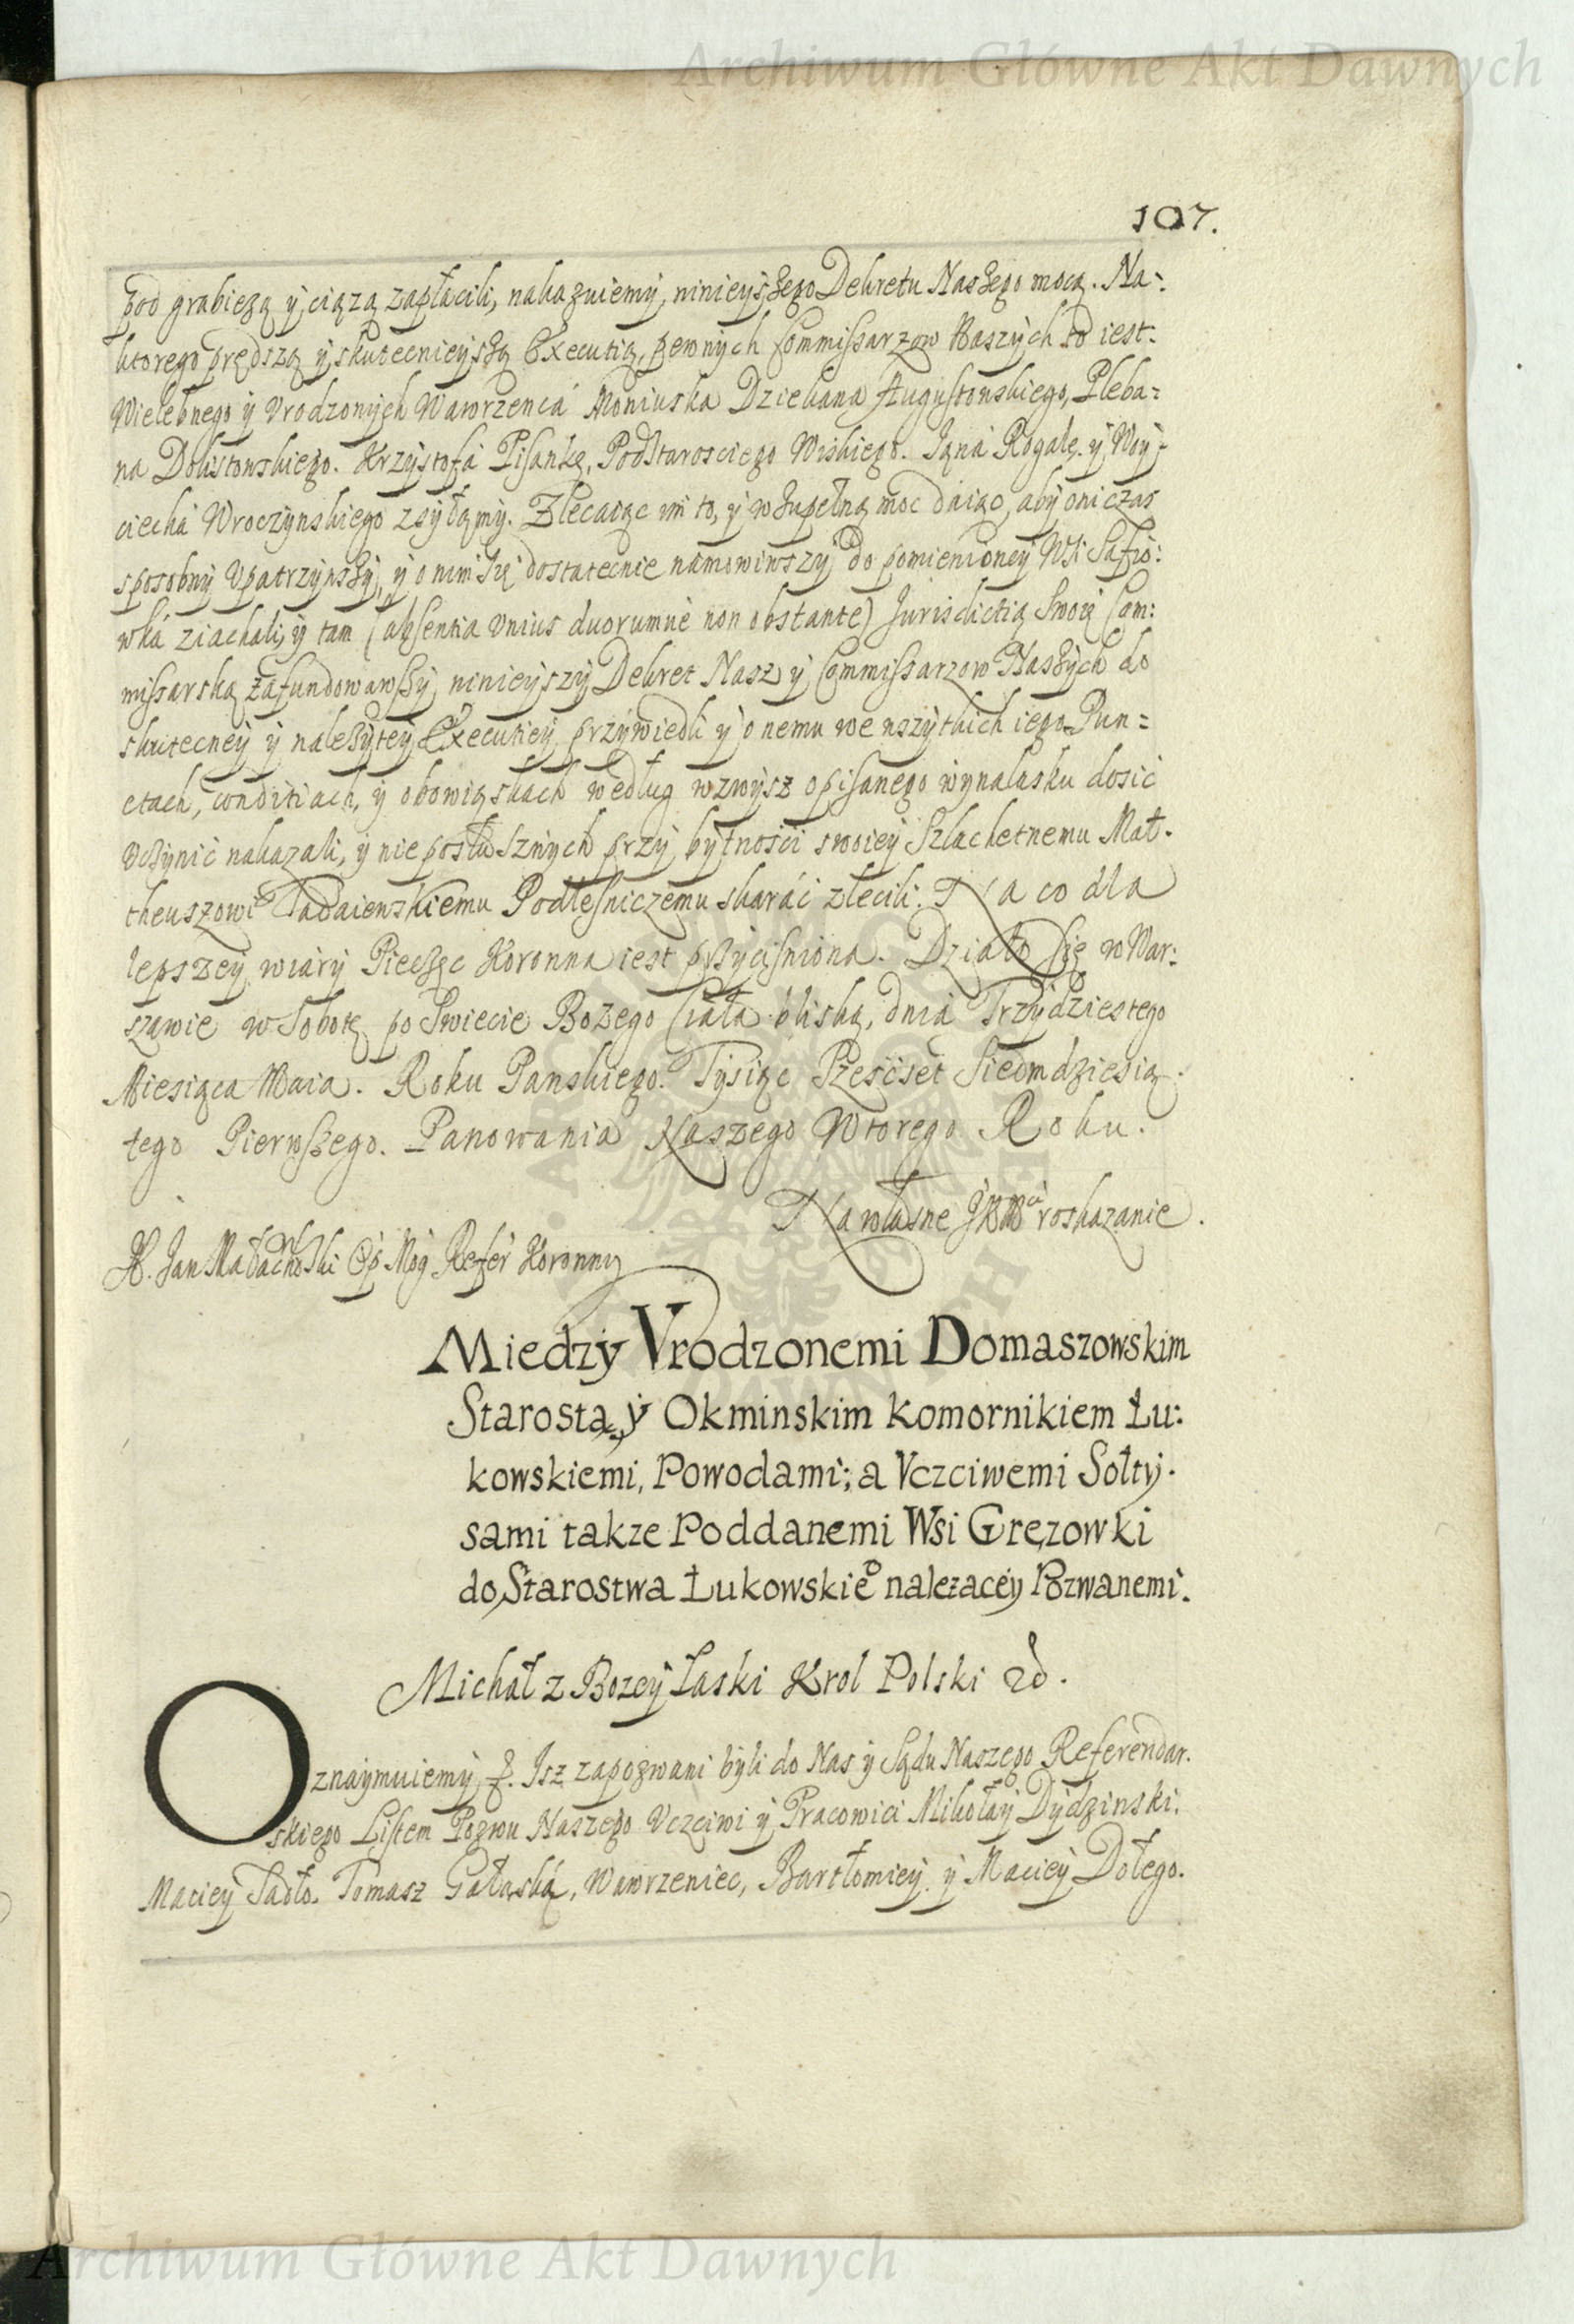 Archiwum Główne Akt Dawnych
107.
pod grabieżą y ciążą zapłacili, nakazuiemy, ninieyszego Dekretu Naszego mocą. Na-
ktorego prędszą y skutecznieyszą Executią, pewnych Commissarzow Naszych to iest.
Wielebnego y Vrodzonych Wawrzenca Moniuska Dziekana Augustowskiego, Pleba=
na Dolistowskiego. Krzysztofa Pisankę, Podstarosciego Wiskiego. Jana Rogalę. y Woy-
ciecha Wroczynskiego zsyłamy. Zlecaiąc im to, y w zupełną moc daiąc, aby oni czas
sposobny Vpatrzywszy, y o nim się dostatecznie namowiwszy do pomienioney Wsi
wka ziachali, y tam (absentia vnius duorumue non obstante) Jurisdictią Swoię Com:
missarską zafundowawszy, ninieyszy Dekret Nasz y Commissarzow Naszych do
skuteczney y należytey Executiey przywiedli y onemu we wszytkich iego Pun=
ctach, conditiach, y obowiąskach według wzwysz opisanego wynalasku dosić
vczynić nakazali, y nieposłusznych przy bytności swoiey Szlachetnemu Mat-
theuszowi Podleśniczemu skarać zlecili. Na co dla
lepszey wiary Pieczęc Koronna iest przyciśniona. Działo się w War:
szawie w Sobotę po Swiecie Bożego Ciała bliską, dnia Trzydziestego
Miesiąca Maia. Roku Panskiego. Tysiąc Szescset Siedmdziesią-
tego Pierwszego. Panowania Naszego Wtorego Roku.
Na własne JKMci roskazanie.
X. Jan Małachowski Op Mog Refer Koronny
Miedzy Vrodzonemi Domaszowskim
Starostą y Okminskim Komornikiem Łu:
kowskiemi, Powodami; a Vczciwemi Sołty-
sami takze Poddanemi Wsi Gręzowki
do Starostwa Łukowskieo nalezacey Pozwanemi.
Michał z Bozey Łaski Krol Polski &c.
Oznaymuiemy &. Isz zapozwani byli do Nas y Sądu Naszego Referendar.
skiego Listem Pozwu Naszego Vczciwi y Pracowici Mikołay Dydzinski.
Maciey Sadło. Tomasz Gałaską, Wawrzeniec, Bartłomiey y Maciey Dołego.
Archiwum Główne Akt Dawnych